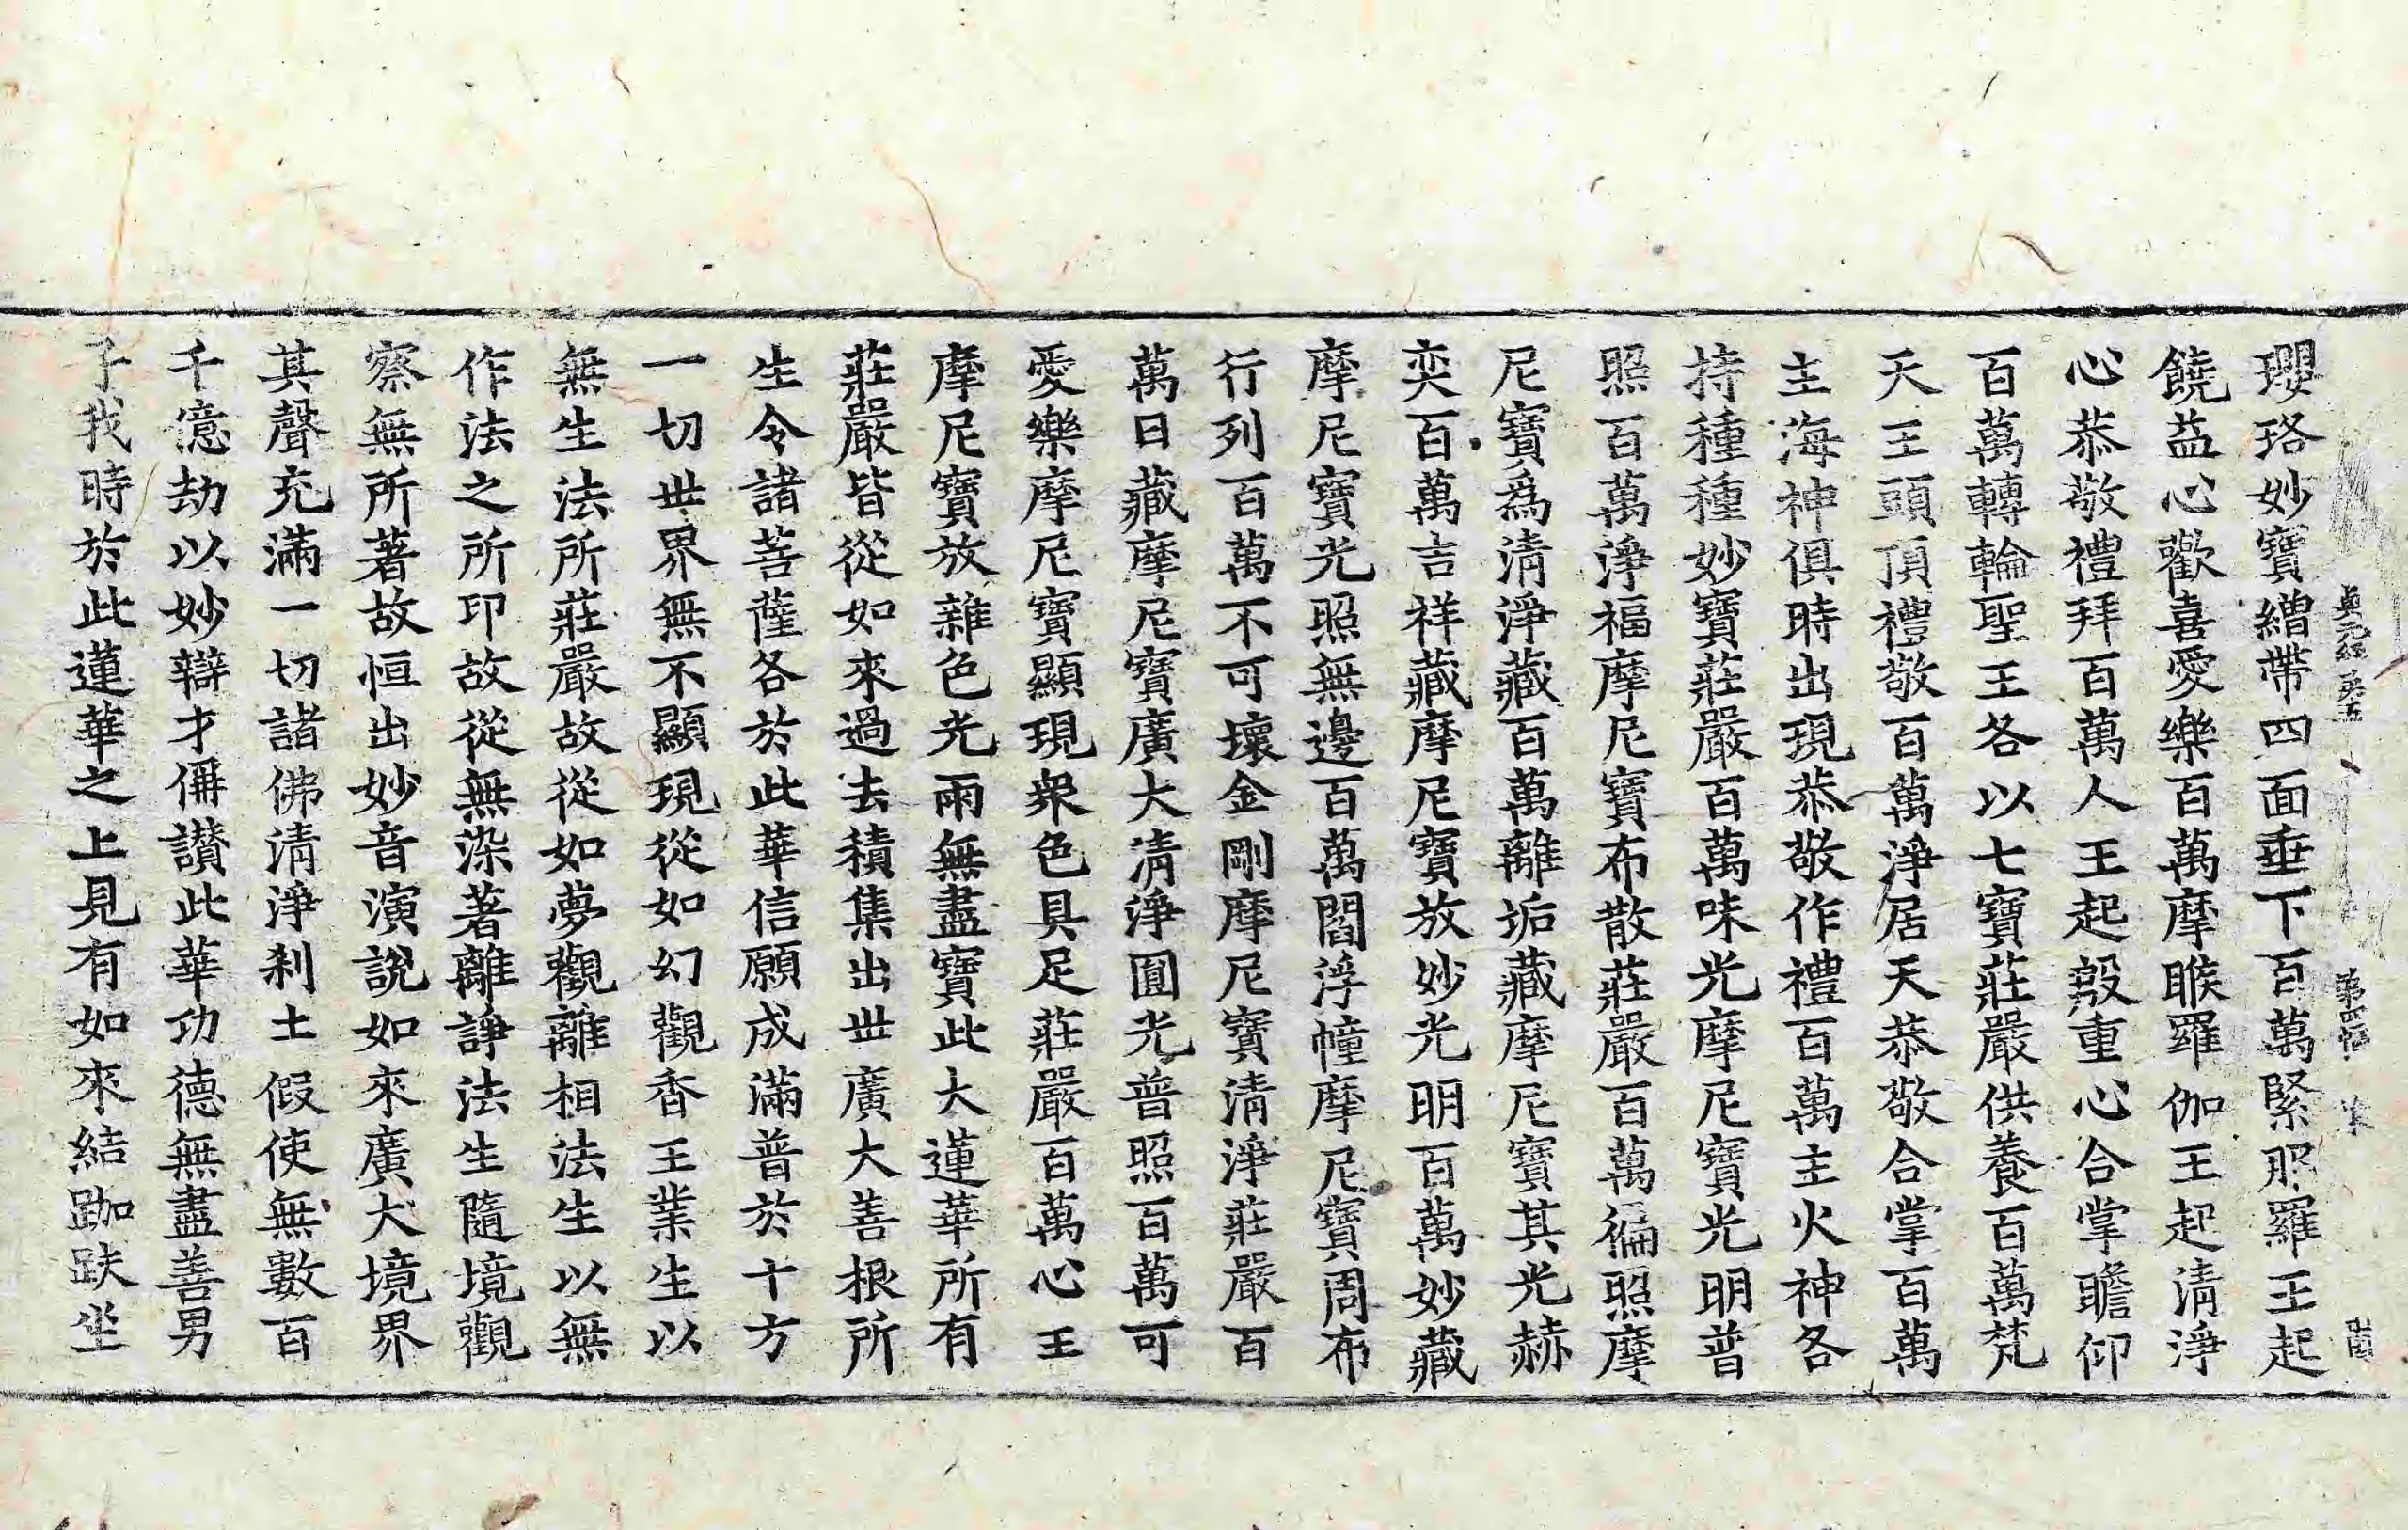 貞元經第五 第四張 
瓔珞妙寶繒帶四面垂下百萬緊那羅王起
饒益心歡喜愛樂百萬摩睺羅伽王起清淨
心恭敬禮拜百萬人王起殷重心合掌瞻仰
百萬轉輪聖王各以七寶莊嚴供養百萬梵
天王頭頂禮敬百萬淨居天恭敬合掌百萬
主海神俱時出現恭敬作禮百萬主火神各
持種種妙寶莊嚴百萬味光摩尼寶光明普
照百萬淨福摩尼寶布散莊嚴百萬徧照摩
尼寶爲清淨藏百萬離垢藏摩尼寶其光赫
奕百萬吉祥藏摩尼寶放妙光明百萬妙藏
摩尼寶光照無邊百萬閻浮幢摩尼寶周布
行列百萬不可壞金剛摩尼寶清淨莊嚴百
萬日藏摩尼寶廣大清淨圓光普照百萬可
愛樂摩尼寶顯現衆色具足莊嚴百萬心王
摩尼寶放雜色光雨無盡寶此大蓮華所有
莊嚴皆從如來過去積集出世廣大善根所
生令諸菩薩各於此華信願成滿普於十方
一切世界無不顯現從如幻觀香王業生以
無生法所莊嚴故從如夢觀離相法生以無
作法之所印故從無染著離諍法生隨境觀
察無所著故恒出妙音演說如來廣大境界
其聲充滿一切諸佛清淨刹土假使無數百
千億劫以妙辯才偁讃此華功德無盡善男
子我時於此蓮華之上見有如來結跏趺坐